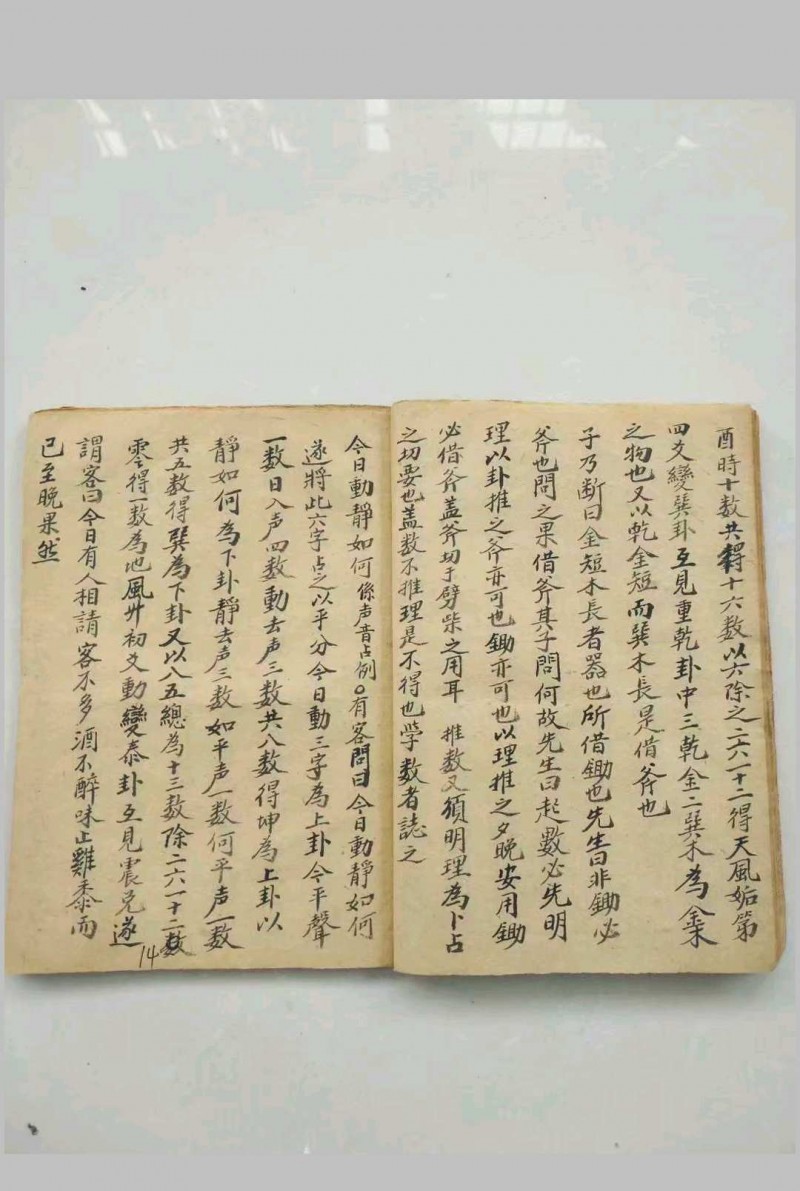 酉時十数共得十六数以六除之二六一十二得天風姤第
四爻變巽卦互見重乾卦中三乾金二巽木為金木
之物也又以乾金短而巽木長是借斧也
子乃断曰金短木長者器也所借鋤也先生曰非鋤必
斧也問之果借斧其子問何故先生曰起數必先明
理以卦推之斧亦可也鋤亦可也以理推之夕晚安用鋤
必借斧蓋斧切于劈柴之用耳 推数又須明理為卜占
之切要也蓋数不推理是不得也学數者誌之
今日動靜如何係声音占例○有客問曰今日動靜如何
遂將此六字占之以平分今日動三字為上卦今平聲
一数日入声四数動去声三数共八数得坤為上卦以
靜如何為下卦靜去声三數如平声一数何平声一数
共五数得巽為下卦又以八五總為十三数除二六一十二数
零得一数為地風升初爻動變泰卦互見震兑遂
謂客曰今日有人相請客不多酒不醉味止雞黍而
已至晚果然
14